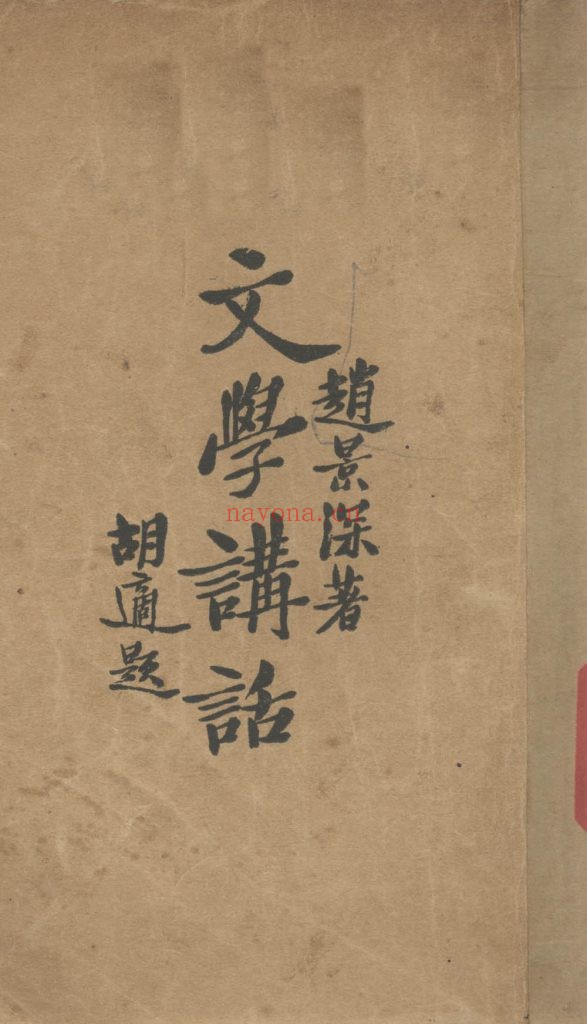 趙景深著
文學講話
胡適題
nayona.cn